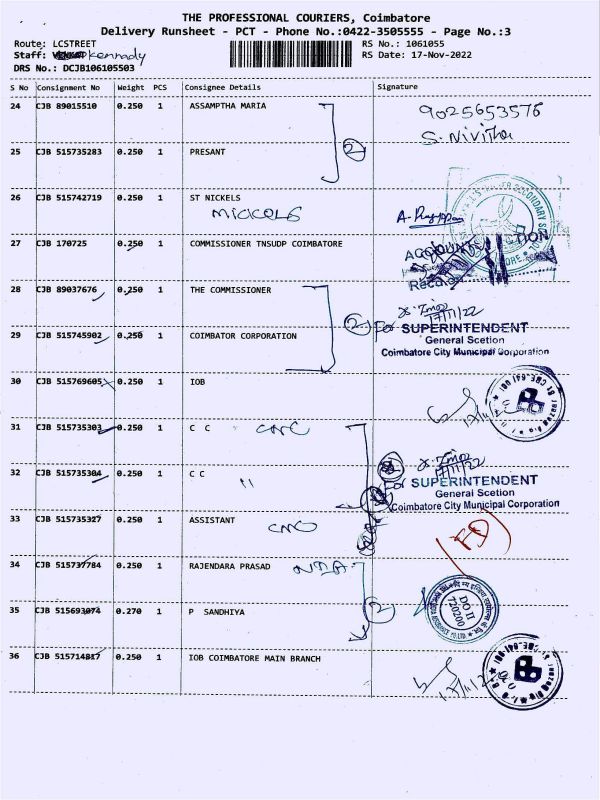 THE PROFESSIONAL COURIERS, Coimbatore
Delivery Runsheet - PCT - Phone No.:0422-3505555 - Page No.:3
Route: LCSTREET
RS No.: 1061055
Staff: Kennady
RS Date: 17-Nov-2022
DRS No.: DCJB106105503
S No Consignment No Weight PCS Consignee Details Signature
24 CJB 89015510 0.250 1 ASSAMPTHA MARIA 9025653576
S. Nivitha
25 CJB 515735283 0.250 1 PRESANT 2
26 CJB 515742719 0.250 1 ST NICKELS
27 CJB 170725 0.250 1 COMMISSIONER TNSUDP COIMBATORE
28 CJB 89037676 0.250 1 THE COMMISSIONER
17/11/22
2 For SUPERINTENDENT
29 CJB 515745902 0.250 1 COIMBATOR CORPORATION
General Scetion
Coimbatore City Municipal Corporation
30 CJB 515769605 0.250 1 IOB
31 CJB 515735303 0.250 1 C C CMC
17/11/22
32 CJB 515735304 0.250 1 C C "
For SUPERINTENDENT
General Scetion
Coimbatore City Municipal Corporation
33 CJB 515735327 0.250 1 ASSISTANT CMC
34 CJB 515737784 0.250 1 RAJENDARA PRASAD NIA
35 CJB 515693074 0.270 1 P SANDHIYA 2
DO II
720200
36 CJB 515714817 0.250 1 IOB COIMBATORE MAIN BRANCH